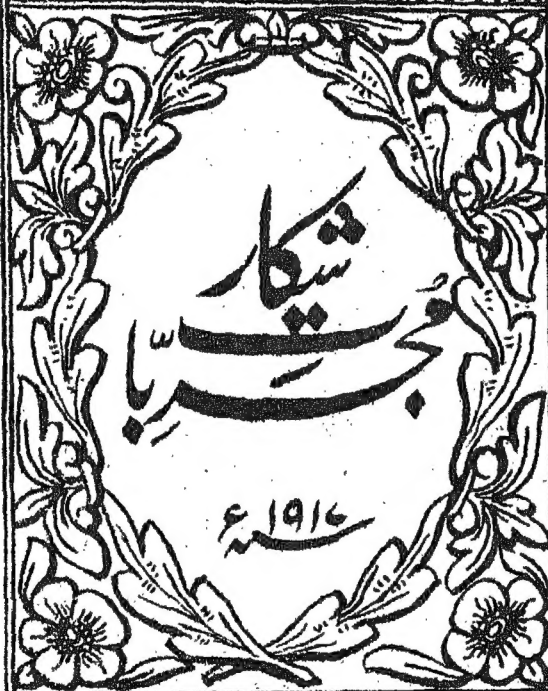 مُجرِّباتِ
شکار
سنہ ۱۹۱۷ء